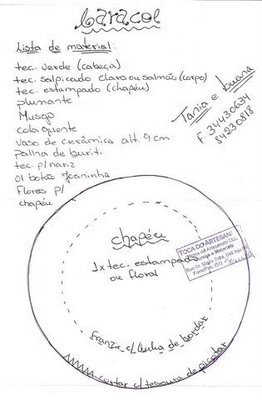 caracol
Lista de material:
tec. verde (cabeça)
tec. salpicado claro ou salmão (corpo)
tec. estampado (chapéu)
plumante
Musgo
cola quente
vaso de cerâmica alt. 9 cm
palha de buriti
tec p/ nariz
01 botão Joaninha
Flores p/
chapéu
Tania e
F. 34430634
84230818
chapéu
1x tec. estampado
ou floral
TOCA DO ARTESANATO
franzir c/ linha de bordar
cortar c/ tesoura de picotar